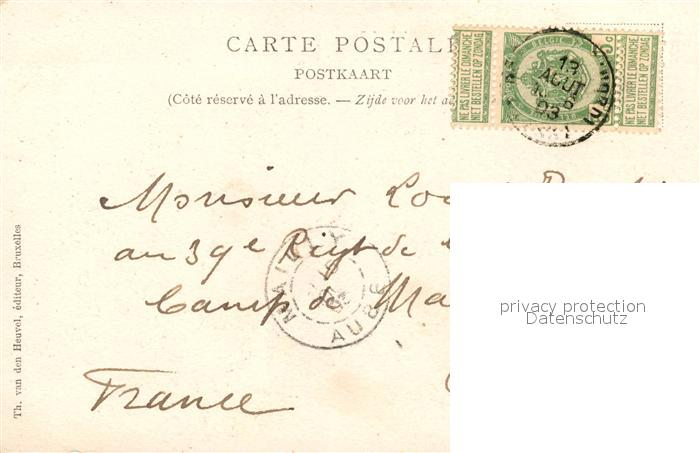 CARTE POSTALE
POSTKAART
(Côté réservé à l'adresse. — Zijde voor het
NE PAS LIVRER LE DIMANCHE
NIET BESTELLEN OP ZONDAG
NE PAS LIVRER LE DIMANCHE
NIET BESTELLEN OP ZONDAG
13
AOUT
03
Monsieur
au 39e Regt de
Camp de Ma
France
MAILLY
AUBE
Th. van den Heuvel, éditeur, Bruxelles
privacy protection
Datenschutz